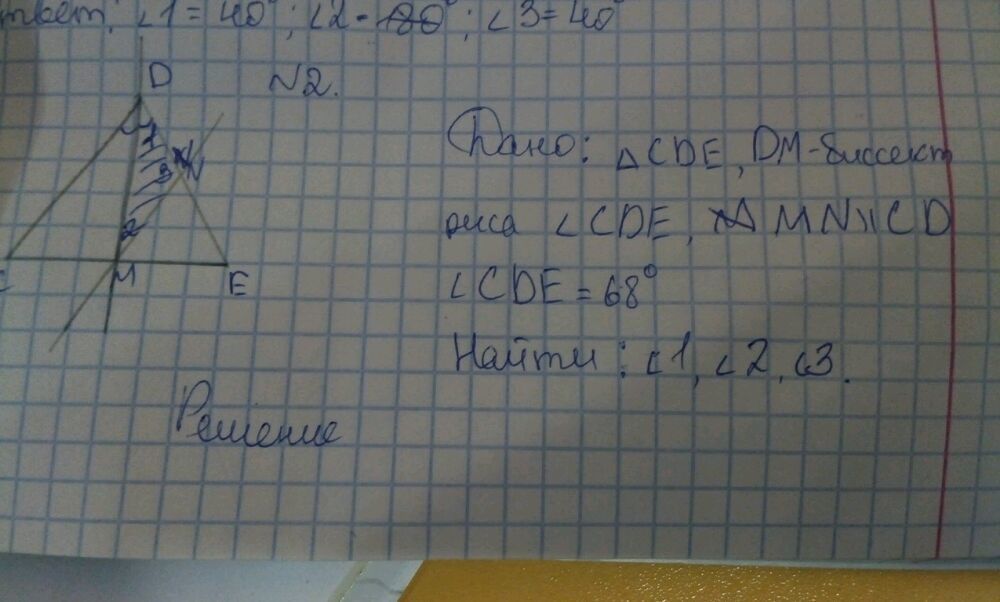 ∠1 = 40°; ∠2 - 100°; ∠3 = 40°
N2.
D
1
3
N
2
M
E
Дано: △CDE, DM-биссект
риса ∠CDE, MN||CD
∠CDE = 68°
Найти: ∠1, ∠2, ∠3.
Решение